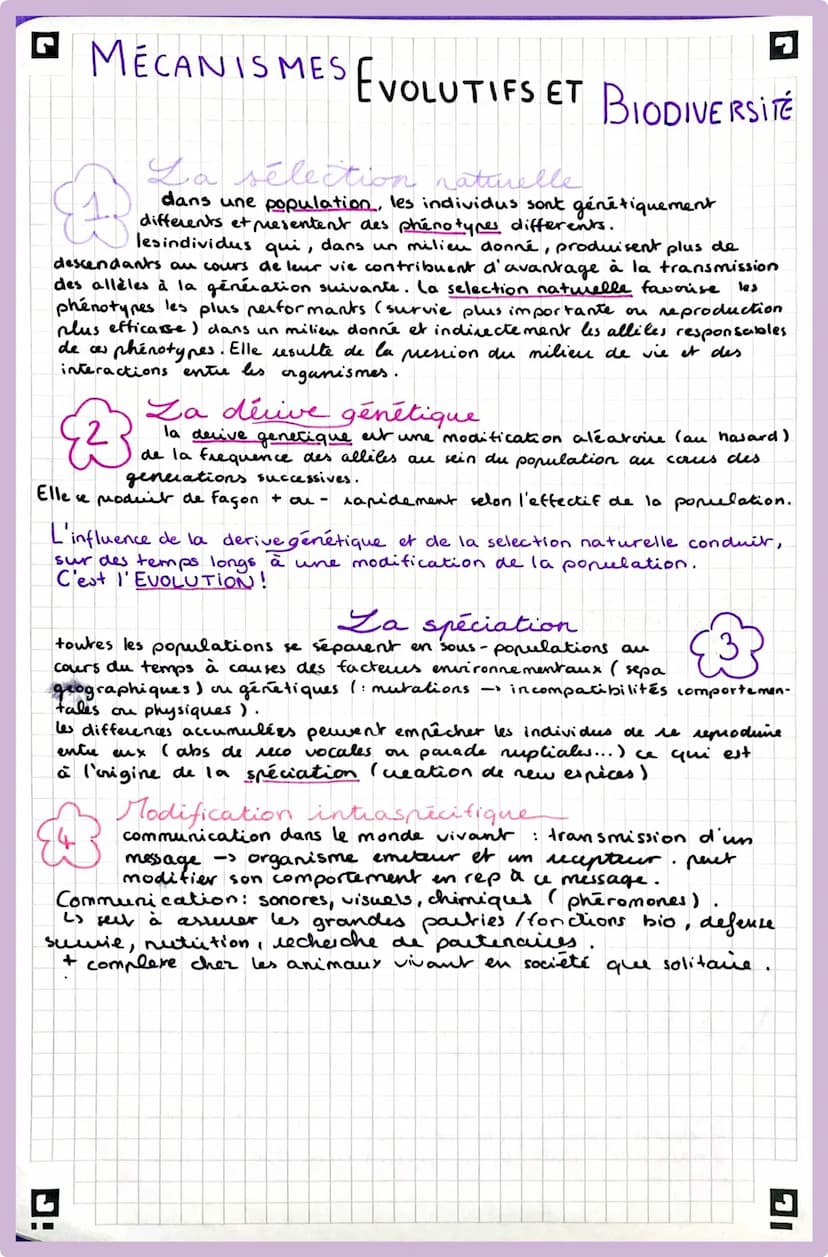 MÉCANISMES EVOLUTIFS ET BIODIVERSITÉ
1 La sélection naturelle
dans une population, les individus sont génétiquement
differents et presentent des phénotypes differents.
les individus qui, dans un milieu donné, produisent plus de
descendants au cours de leur vie contribuent d'avantage à la transmission
des allèles à la génération suivante. la selection naturelle favorise les
phénotypes les plus performants (survie plus importante ou reproduction
plus efficace) dans un milieu donné et indirectement les allèles responsables
de ces phénotypes. Elle resulte de la pression du milieu de vie et des
interactions entre les organismes.
2 La dérive génétique
la derive genetique est une modification aléatoire (au hasard)
de la frequence des allèles au sein du population au cours des
generations successives.
Elle se produit de façon + ou - rapidement selon l'effectif de la population.
L'influence de la derive génétique et de la selection naturelle conduit,
sur des temps longs à une modification de la population.
C'est l'EVOLUTION !
La spéciation
3
toutes les populations se séparent en sous-populations au
cours du temps à causes des facteurs environnementaux (sepa
geographiques) ou génétiques (: mutations → incompatibilités comportemen-
tales ou physiques).
les differences accumulées peuvent empêcher les individus de se reproduire
entre eux (abs de reco vocales ou parade nuptiales...) ce qui est
à l'origine de la spéciation (creation de new espèces)
4 Modification intraspécifique
communication dans le monde vivant : transmission d'un
message → organisme emetteur et un recepteur. peut
modifier son comportement en rep à ce message.
Communication: sonores, visuels, chimiques (phéromones).
↳ sert à assurer les grandes parties / fonctions bio, defense
survie, nutrition, recherche de partenaires.
+ complexe chez les animaux vivant en société que solitaire.